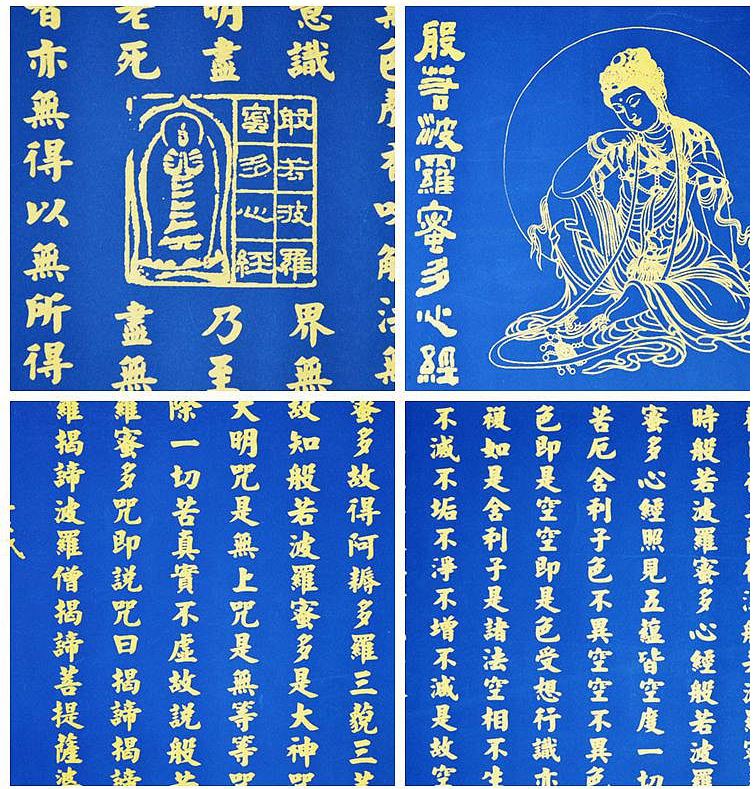 意識
界無
明盡
乃至
老死
盡無
智亦無得以無所得
般若波羅
蜜多心經
般若波羅蜜多心經
蜜多故得阿耨多羅三藐三菩
故知般若波羅蜜多是大神咒
大明咒是無上咒是無等等咒
除一切苦真實不虛故説般若
羅蜜多咒即説咒曰揭諦揭諦
羅揭諦波羅僧揭諦菩提薩婆
時般若波羅蜜多心經般若波羅
蜜多心經照見五蘊皆空度一切
苦厄舍利子色不異空空不異色
色即是空空即是色受想行識亦
復如是舍利子是諸法空相不生
不滅不垢不淨不增不減是故空